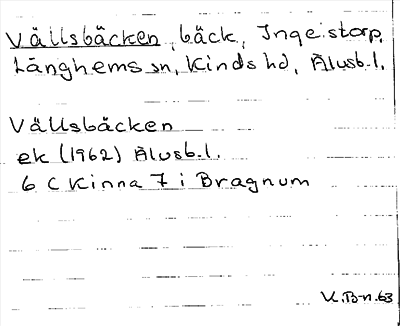 Vällsbäcken, bäck, Ingeistorp,
Länghems sn, Kinds hd, Älvsb. l.
Vällsbäcken
ek (1962) Älvsb. l.
6 C Kinna 7 i Bragnum
K. B-n. 63